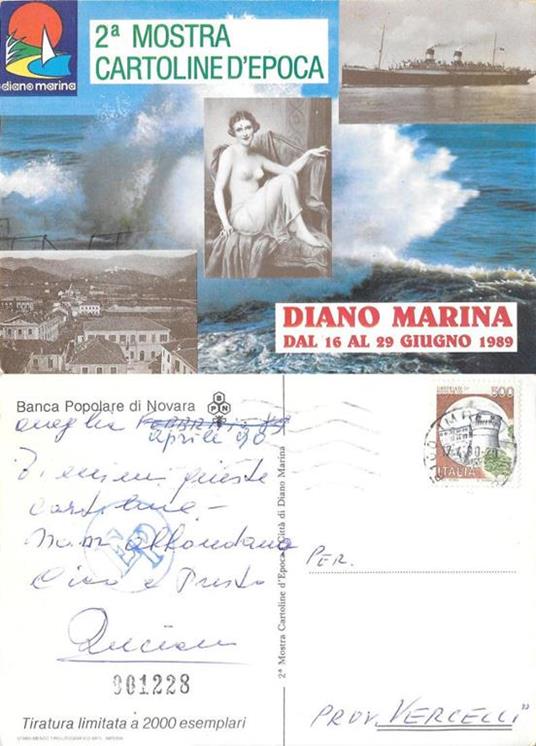 diano marina
2ª MOSTRA
CARTOLINE D'EPOCA
DIANO MARINA
DAL 16 AL 29 GIUGNO 1989
Banca Popolare di Novara
BPN
aprile 90
queste
cartoline -
Non abbondano
Ciao a Presto
EP
001228
Tiratura limitata a 2000 esemplari
2ª Mostra Cartoline d'Epoca - Città di Diano Marina
500
ITALIA
PER.
PROV. VERCELLI